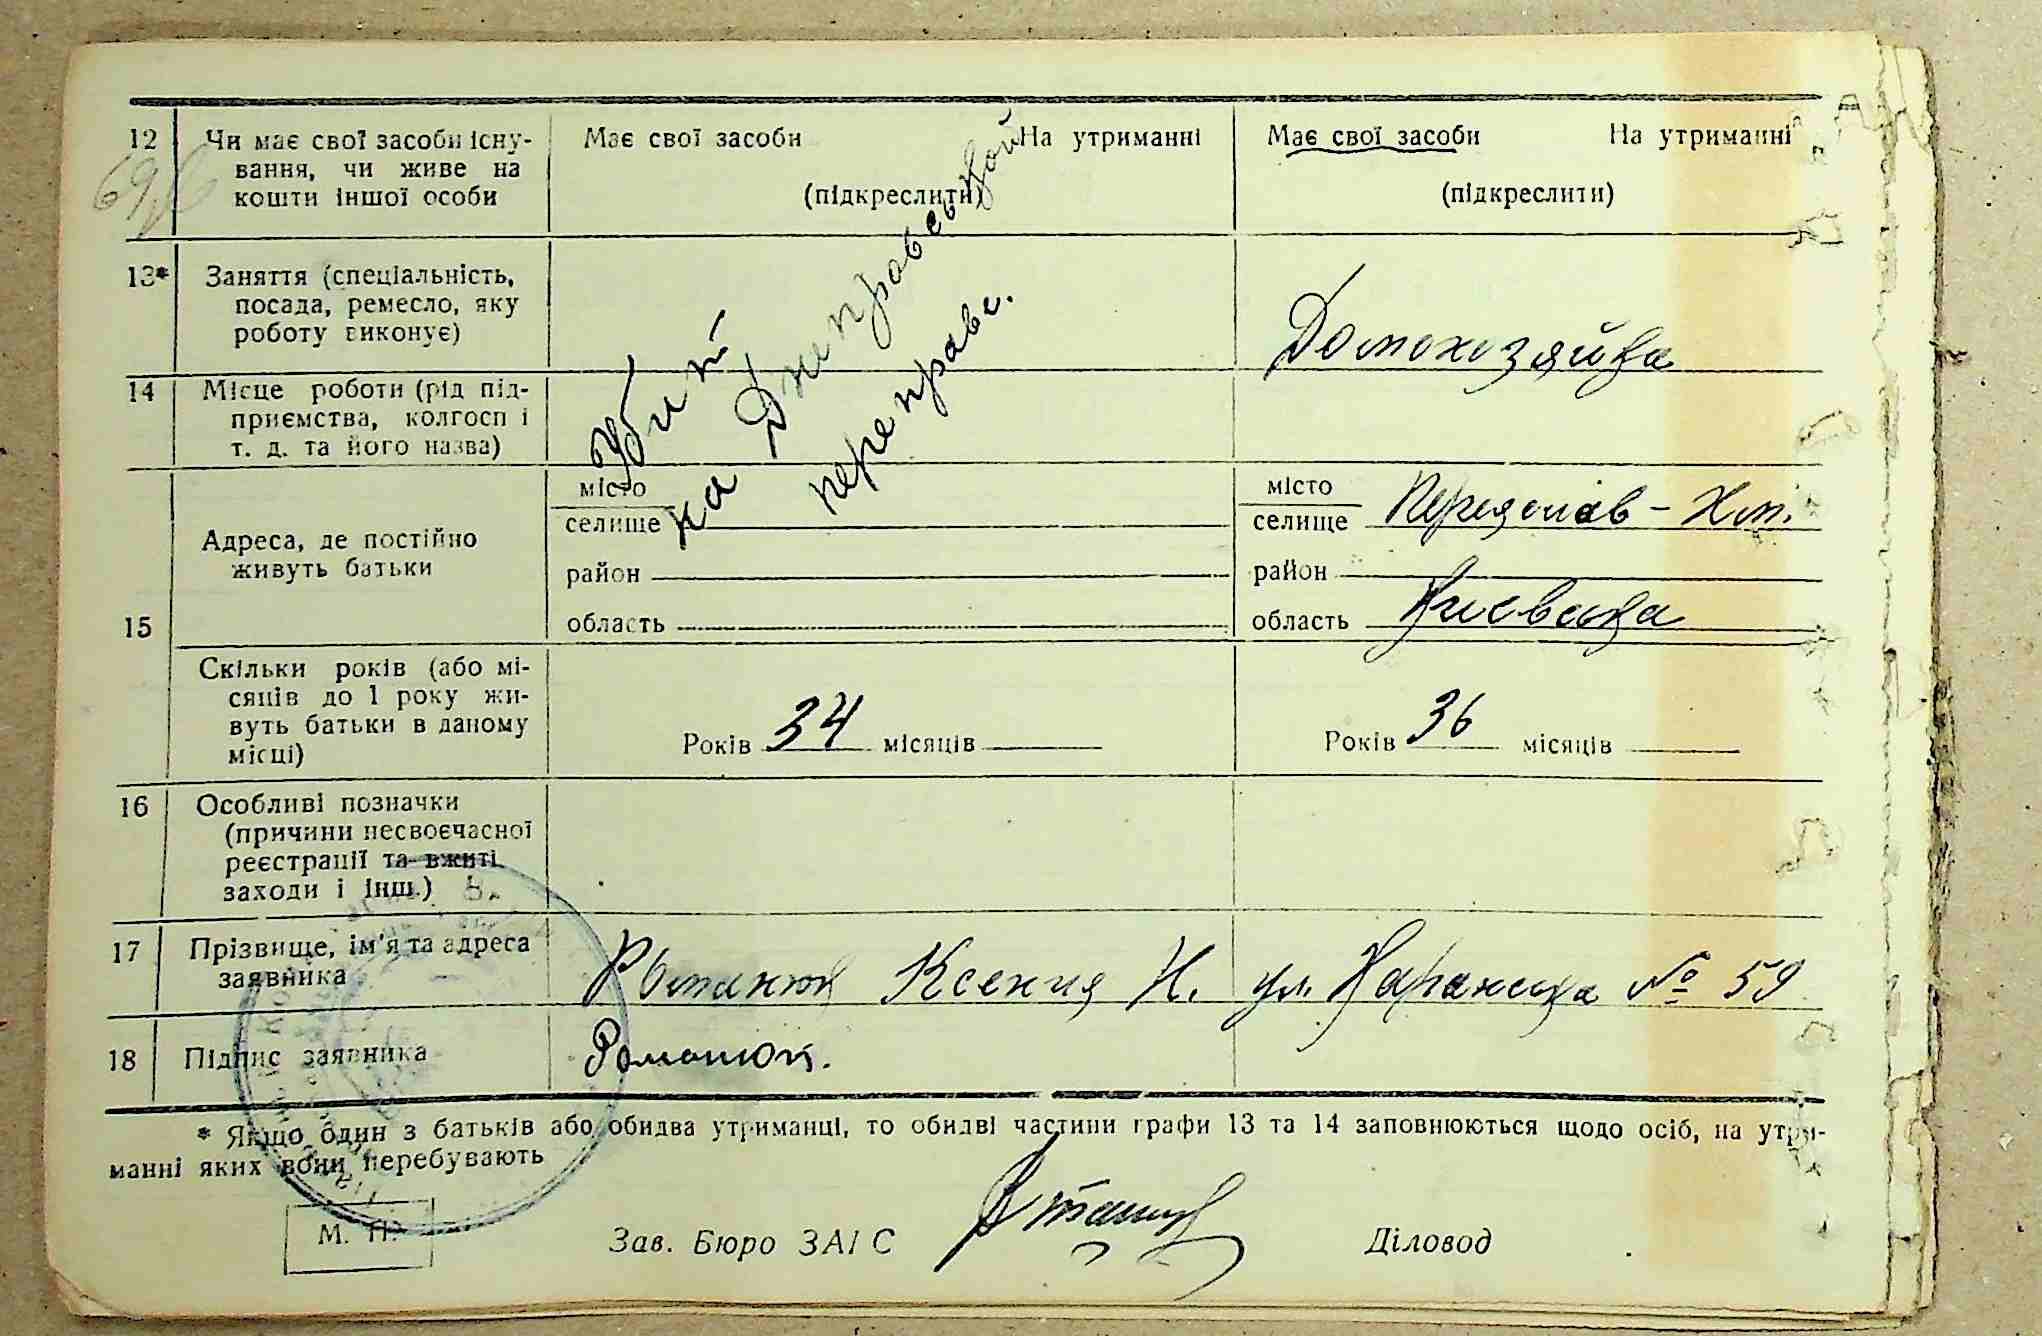 12 Чи має свої засоби існу-
вання, чи живе на
кошти іншої особи
Має свої засоби На утриманні
(підкреслити)
Має свої засоби На утриманні
(підкреслити)
13* Заняття (спеціальність,
посада, ремесло, яку
роботу виконує)
Убит
на Дніпровської
переправе.
Домохозяйка
14 Місце роботи (рід під-
приємства, колгосп і
т. д. та його назва)
15 Адреса, де постійно
живуть батьки
місто
селище
район
область
місто
селище Переяслав - Хм.
район
область Киевска
Скільки років (або мі-
сяців до 1 року жи-
вуть батьки в даному
місці)
Років 34 місяців
Років 36 місяців
16 Особливі позначки
(причини несвоєчасної
реєстрації та вжиті
заходи і інш.)
17 Прізвище, ім'я та адреса
заявника
Ксения Н. ул. № 59
18 Підпис заявника
Романюк.
* Якщо один з батьків або обидва утриманці, то обидві частини графи 13 та 14 заповнюються щодо осіб, на утри-
манні яких вони перебувають
М. П.
Зав. Бюро ЗАГС Діловод